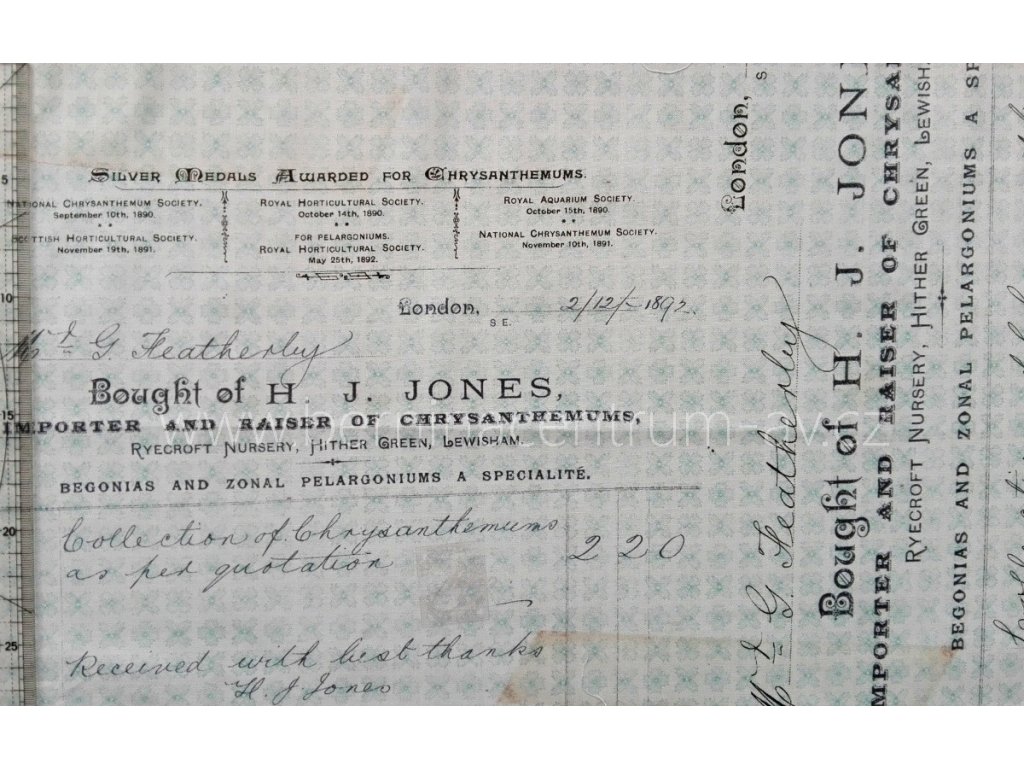 SILVER MEDALS AWARDED FOR CHRYSANTHEMUMS.
NATIONAL CHRYSANTHEMUM SOCIETY.
September 10th, 1890.
SCOTTISH HORTICULTURAL SOCIETY.
November 19th, 1891.
ROYAL HORTICULTURAL SOCIETY.
October 14th, 1890.
FOR PELARGONIUMS.
ROYAL HORTICULTURAL SOCIETY.
May 25th, 1892.
ROYAL AQUARIUM SOCIETY.
October 15th, 1890.
NATIONAL CHRYSANTHEMUM SOCIETY.
November 10th, 1891.
London, 2/12/-1892
S E.
G. Featherby
Bought of H. J. JONES,
IMPORTER AND RAISER OF CHRYSANTHEMUMS,
RYECROFT NURSERY, HITHER GREEN, LEWISHAM.
BEGONIAS AND ZONAL PELARGONIUMS A SPECIALITÉ.
Collection of Chrysanthemums
as per quotation 2 2 0
Received with best thanks
H. J Jones
5
10
15
20
25
London, S
G. Featherby
Bought of H. J. JON
IMPORTER AND RAISER OF CHRYSAN
RYECROFT NURSERY, HITHER GREEN, LEWISHA
BEGONIAS AND ZONAL PELARGONIUMS A SP